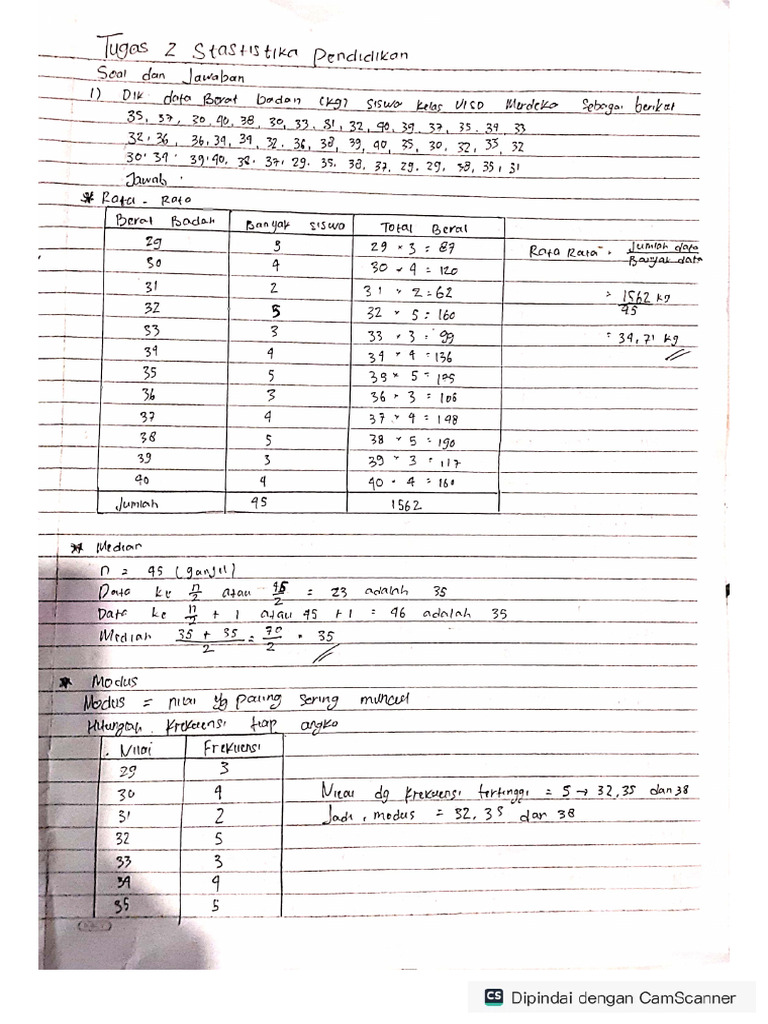 Tugas 2 Stastistika Pendidikan
Soal dan Jawaban
1) Dik data Berat badan (kg) siswa kelas VIII D Merdeka sebagai berikut
35, 37, 30, 40, 38, 30, 33, 31, 32, 40, 39, 37, 35, 34, 33
32, 36, 36, 34, 34, 32, 36, 38, 39, 40, 35, 30, 32, 33, 32
30, 34, 39, 40, 38, 37, 29, 35, 38, 37, 29, 29, 38, 35, 31
Jawab :
* Rata - Rata
Berat Badan Banyak siswa Total Berat
29 3 29 × 3 = 87
30 4 30 × 4 = 120
31 2 31 × 2 = 62
32 5 32 × 5 = 160
33 3 33 × 3 = 99
34 4 34 × 4 = 136
35 5 35 × 5 = 175
36 3 36 × 3 = 108
37 4 37 × 4 = 148
38 5 38 × 5 = 190
39 3 39 × 3 = 117
40 4 40 × 4 = 160
Jumlah 45 1562
Rata Rata = Jumlah data
Banyak data
= 1562 kg
45
= 34,71 kg
* Median
n = 45 (ganjil)
Data ke n/2 atau 45/2 = 23 adalah 35
Data ke n/2 + 1 atau 45 + 1 = 46 adalah 35
Median 35 + 35/2 = 70/2 = 35
* Modus
Modus = nilai yg paling sering muncul
Hitunglah frekuensi tiap angka
Nilai Frekuensi
29 3
30 4
31 2
32 5
33 3
34 4
35 5
Nilai dg frekuensi tertinggi = 5 → 32, 35 dan 38
Jadi, modus = 32, 35 dan 38
CS Dipindai dengan CamScanner